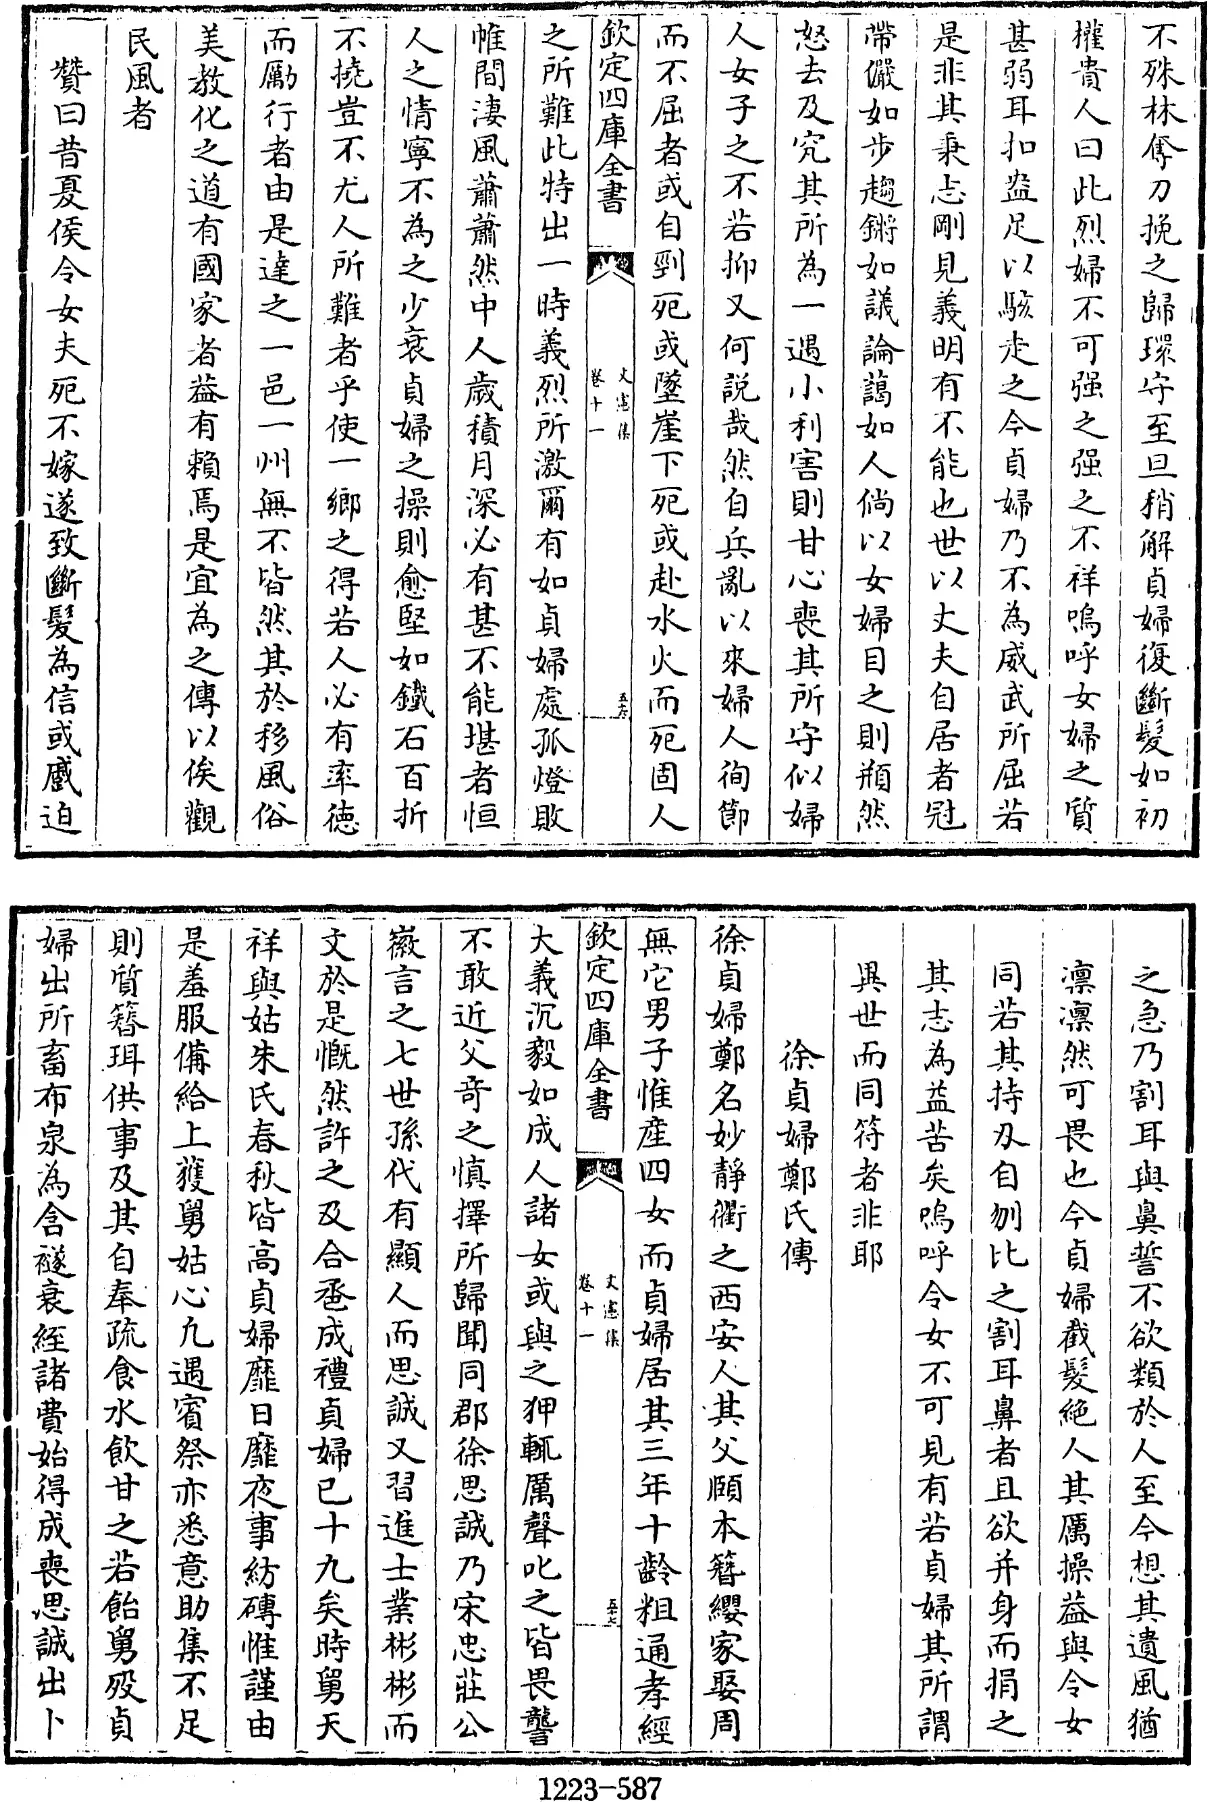 不殊林奪刀挽之歸環守至旦稍解貞婦復斷髮如初
權貴人曰此烈婦不可强之强之不祥嗚呼女婦之質
甚弱耳扣盎足以駭走之今貞婦乃不為威武所屈若
是非其秉志剛見義明有不能也世以丈夫自居者冠
帶儼如步趨鏘如議論藹如人倘以女婦目之則頩然
怒去及究其所為一遇小利害則甘心喪其所守似婦
人女子之不若抑又何説哉然自兵亂以來婦人徇節
而不屈者或自剄死或墜崖下死或赴水火而死固人
欽定四庫全書
文憲集
卷十一
五六
之所難此特出一時義烈所激爾有如貞婦處孤燈敗
帷間淒風蕭蕭然中人歲積月深必有甚不能堪者恒
人之情寧不為之少衰貞婦之操則愈堅如鐵石百折
不撓豈不尤人所難者乎使一鄉之得若人必有率德
而勵行者由是達之一邑一州無不皆然其於移風俗
美教化之道有國家者葢有賴焉是宜為之傳以俟觀
民風者
贊曰昔夏侯令女夫死不嫁遂致斷髮為信或慼迫
之急乃割耳與鼻誓不欲類於人至今想其遺風猶
凛凛然可畏也今貞婦截髮絶人其厲操益與令女
同若其持刄自刎比之割耳鼻者且欲并身而捐之
其志為益苦矣嗚呼令女不可見有若貞婦其所謂
異世而同符者非耶
徐貞婦鄭氏傳
徐貞婦鄭名妙靜衢之西安人其父頤本簪纓家娶周
無它男子惟産四女而貞婦居其三年十齡粗通孝經
欽定四庫全書
文憲集
卷十一
五七
大義沉毅如成人諸女或與之狎輒厲聲叱之皆畏讋
不敢近父奇之慎擇所歸聞同郡徐思誠乃宋忠莊公
徽言之七世孫代有顯人而思誠又習進士業彬彬而
文於是慨然許之及合巹成禮貞婦已十九矣時舅天
祥與姑朱氏春秋皆高貞婦靡日靡夜事紡磚惟謹由
是羞服備給上獲舅姑心凢遇賓祭亦悉意助集不足
則質簪珥供事及其自奉疏食水飲甘之若飴舅殁貞
婦出所畜布泉為含襚衰絰諸費始得成喪思誠出卜
1223-587